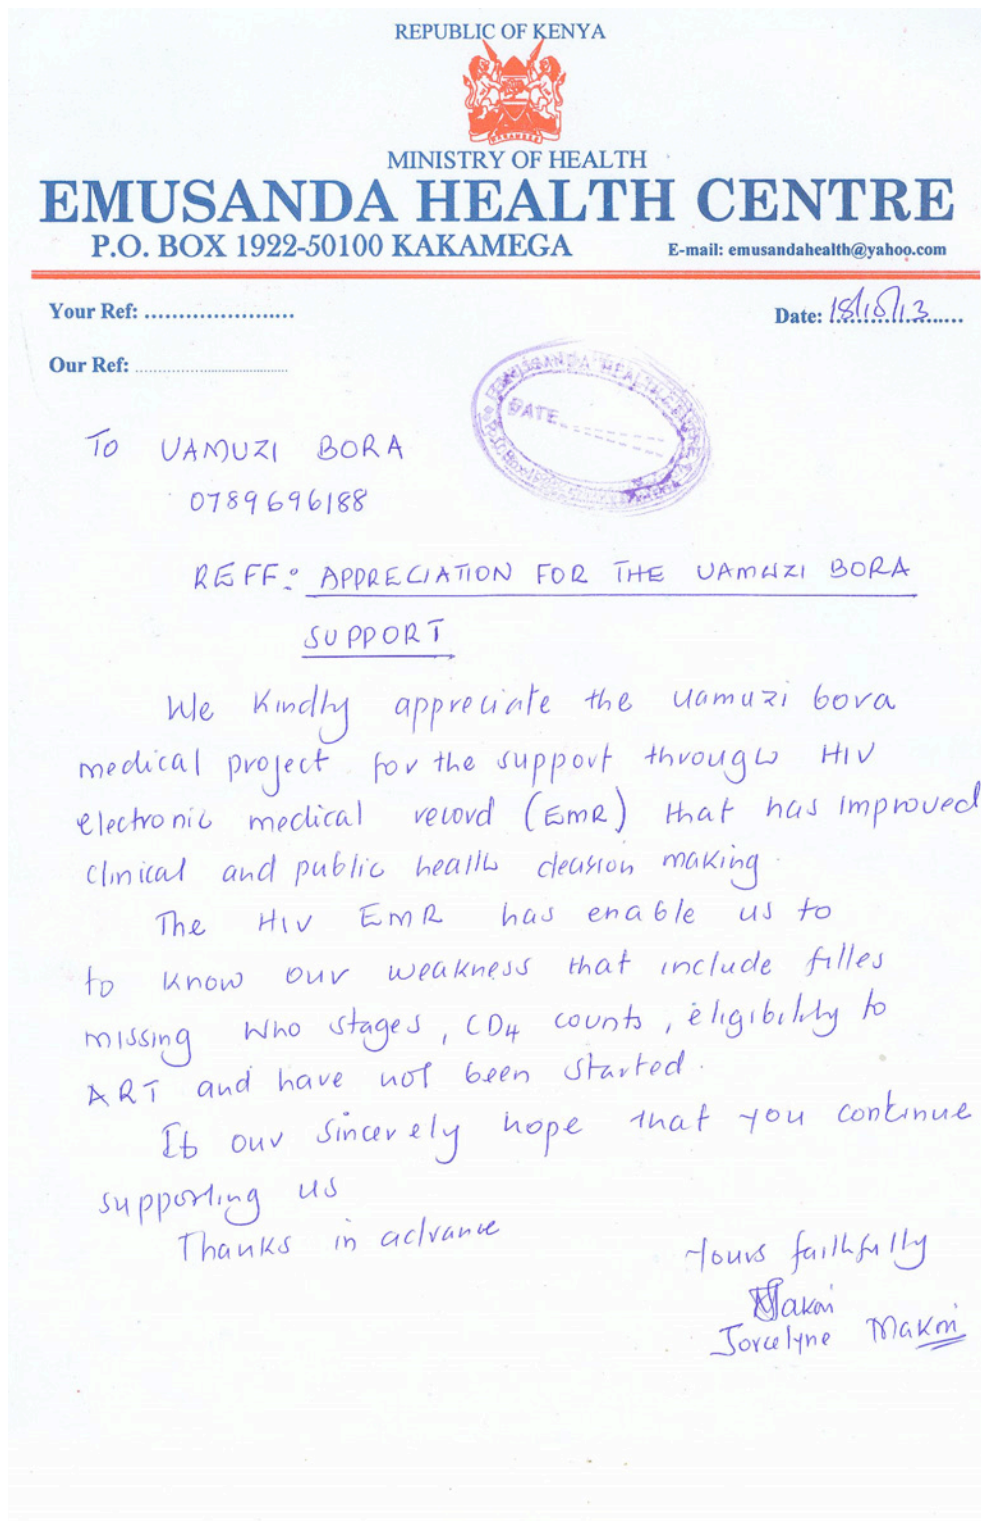 REPUBLIC OF KENYA
HARAMBEE
MINISTRY OF HEALTH
EMUSANDA HEALTH CENTRE
P.O. BOX 1922-50100 KAKAMEGA E-mail: emusandahealth@yahoo.com
Your Ref: ......................
Date: 18/10/13
Our Ref: ......................
EMUSANDA HEALTH CENTRE
DATE
TO UAMUZI BORA
0789696188
REFF: APPRECIATION FOR THE UAMUZI BORA
SUPPORT
We Kindly appreciate the uamuzi bora
medical project for the support through HIV
electronic medical record (EMR) that has improved
clinical and public health decision making.
The HIV EMR has enable us to
to know our weakness that include filles
missing Who stages, CD4 counts, eligibility to
ART and have not been started.
It our Sincerely hope that you continue
supporting us
Thanks in advance
Yours faithfully
Makori
Jorcelyne